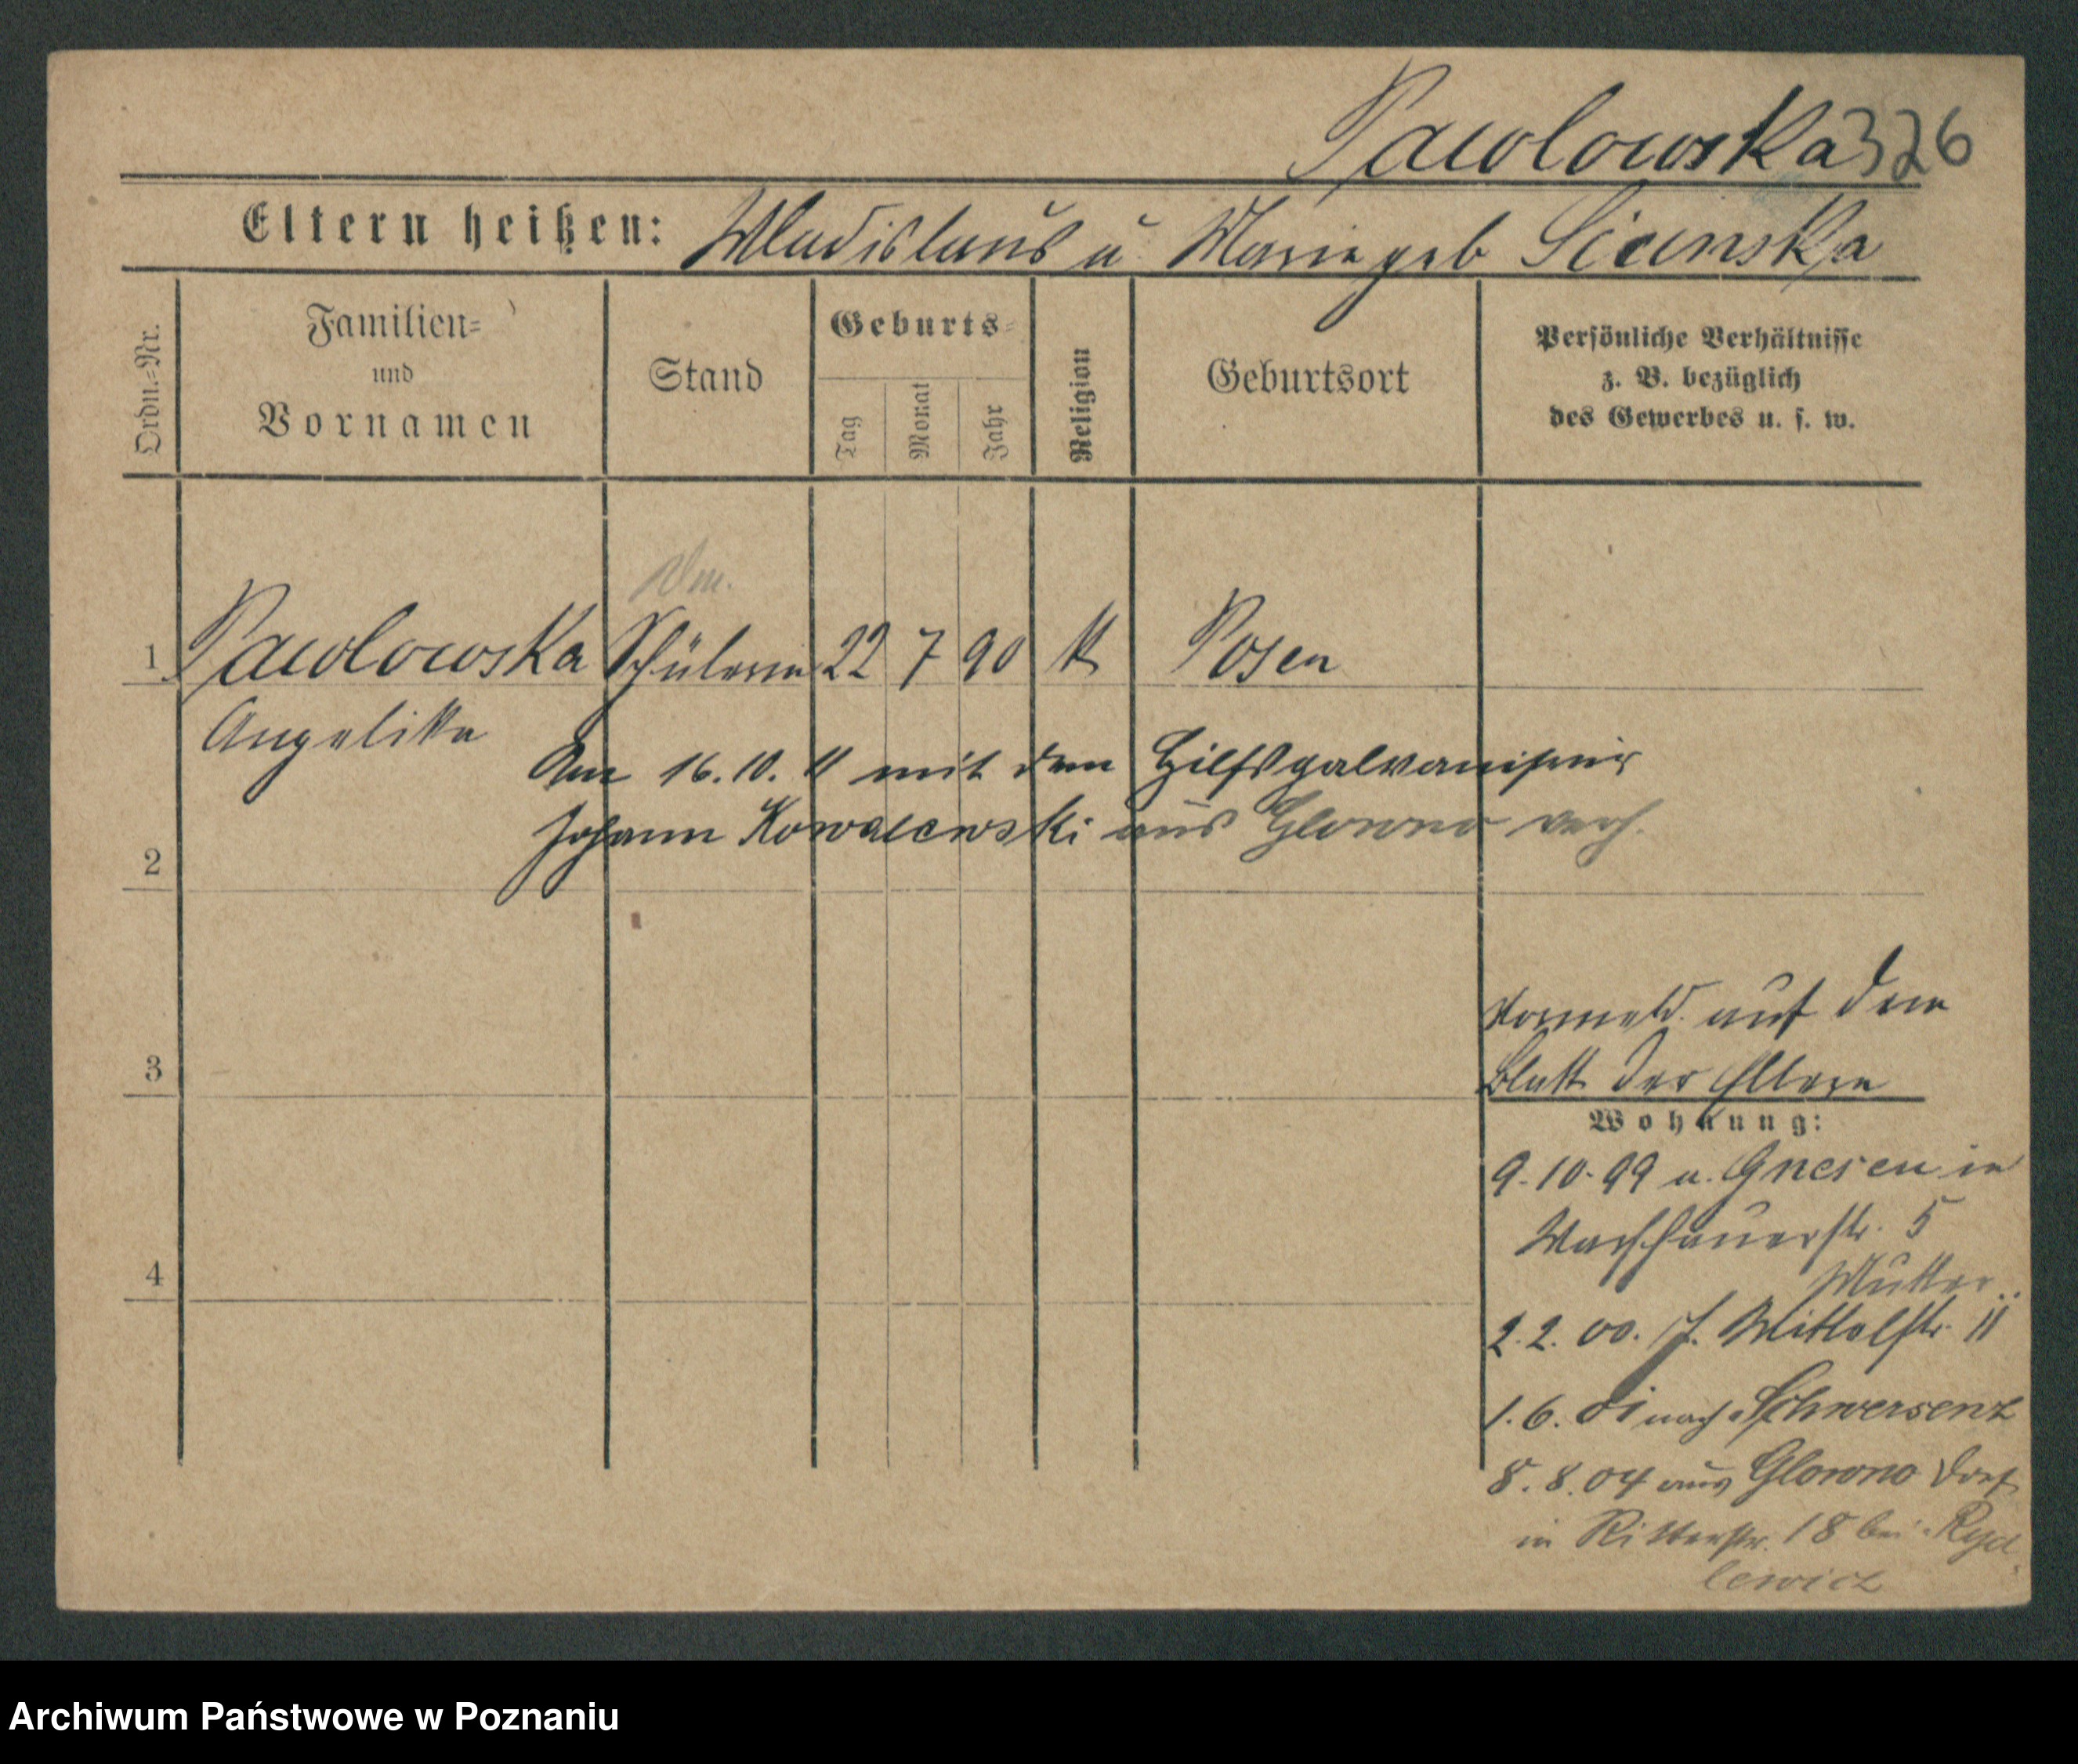 Pawlowska 326
Eltern heißen: Wladislaus u Marie geb Sicinska
Ordn.=Nr.
Familien=
und
Vornamen
Stand
Geburts=
Tag
Monat
Jahr
Religion
Geburtsort
Persönliche Verhältnisse
z. B. bezüglich
des Gewerbes u. s. w.
1 Pawlowska Schülerin 22 7 90 k Posen
Angelika
Am 16. 10. 11 mit dem Hilfsgalvaniseur
Johann Kowalewski aus Glowno verh.
2
3
4
Vormeld. auf dem
Blatt der Eltern
Wohnung:
9.10.99 u. Gnesen in
Wasserstr. 5
Mutter
2.2.00. Mittelstr. 11
1.6.01 nach Schwersenz
8.8.04 aus Glowno Dorf
in Ritterstr. 18 bei Ryd
lewicz
Archiwum Państwowe w Poznaniu